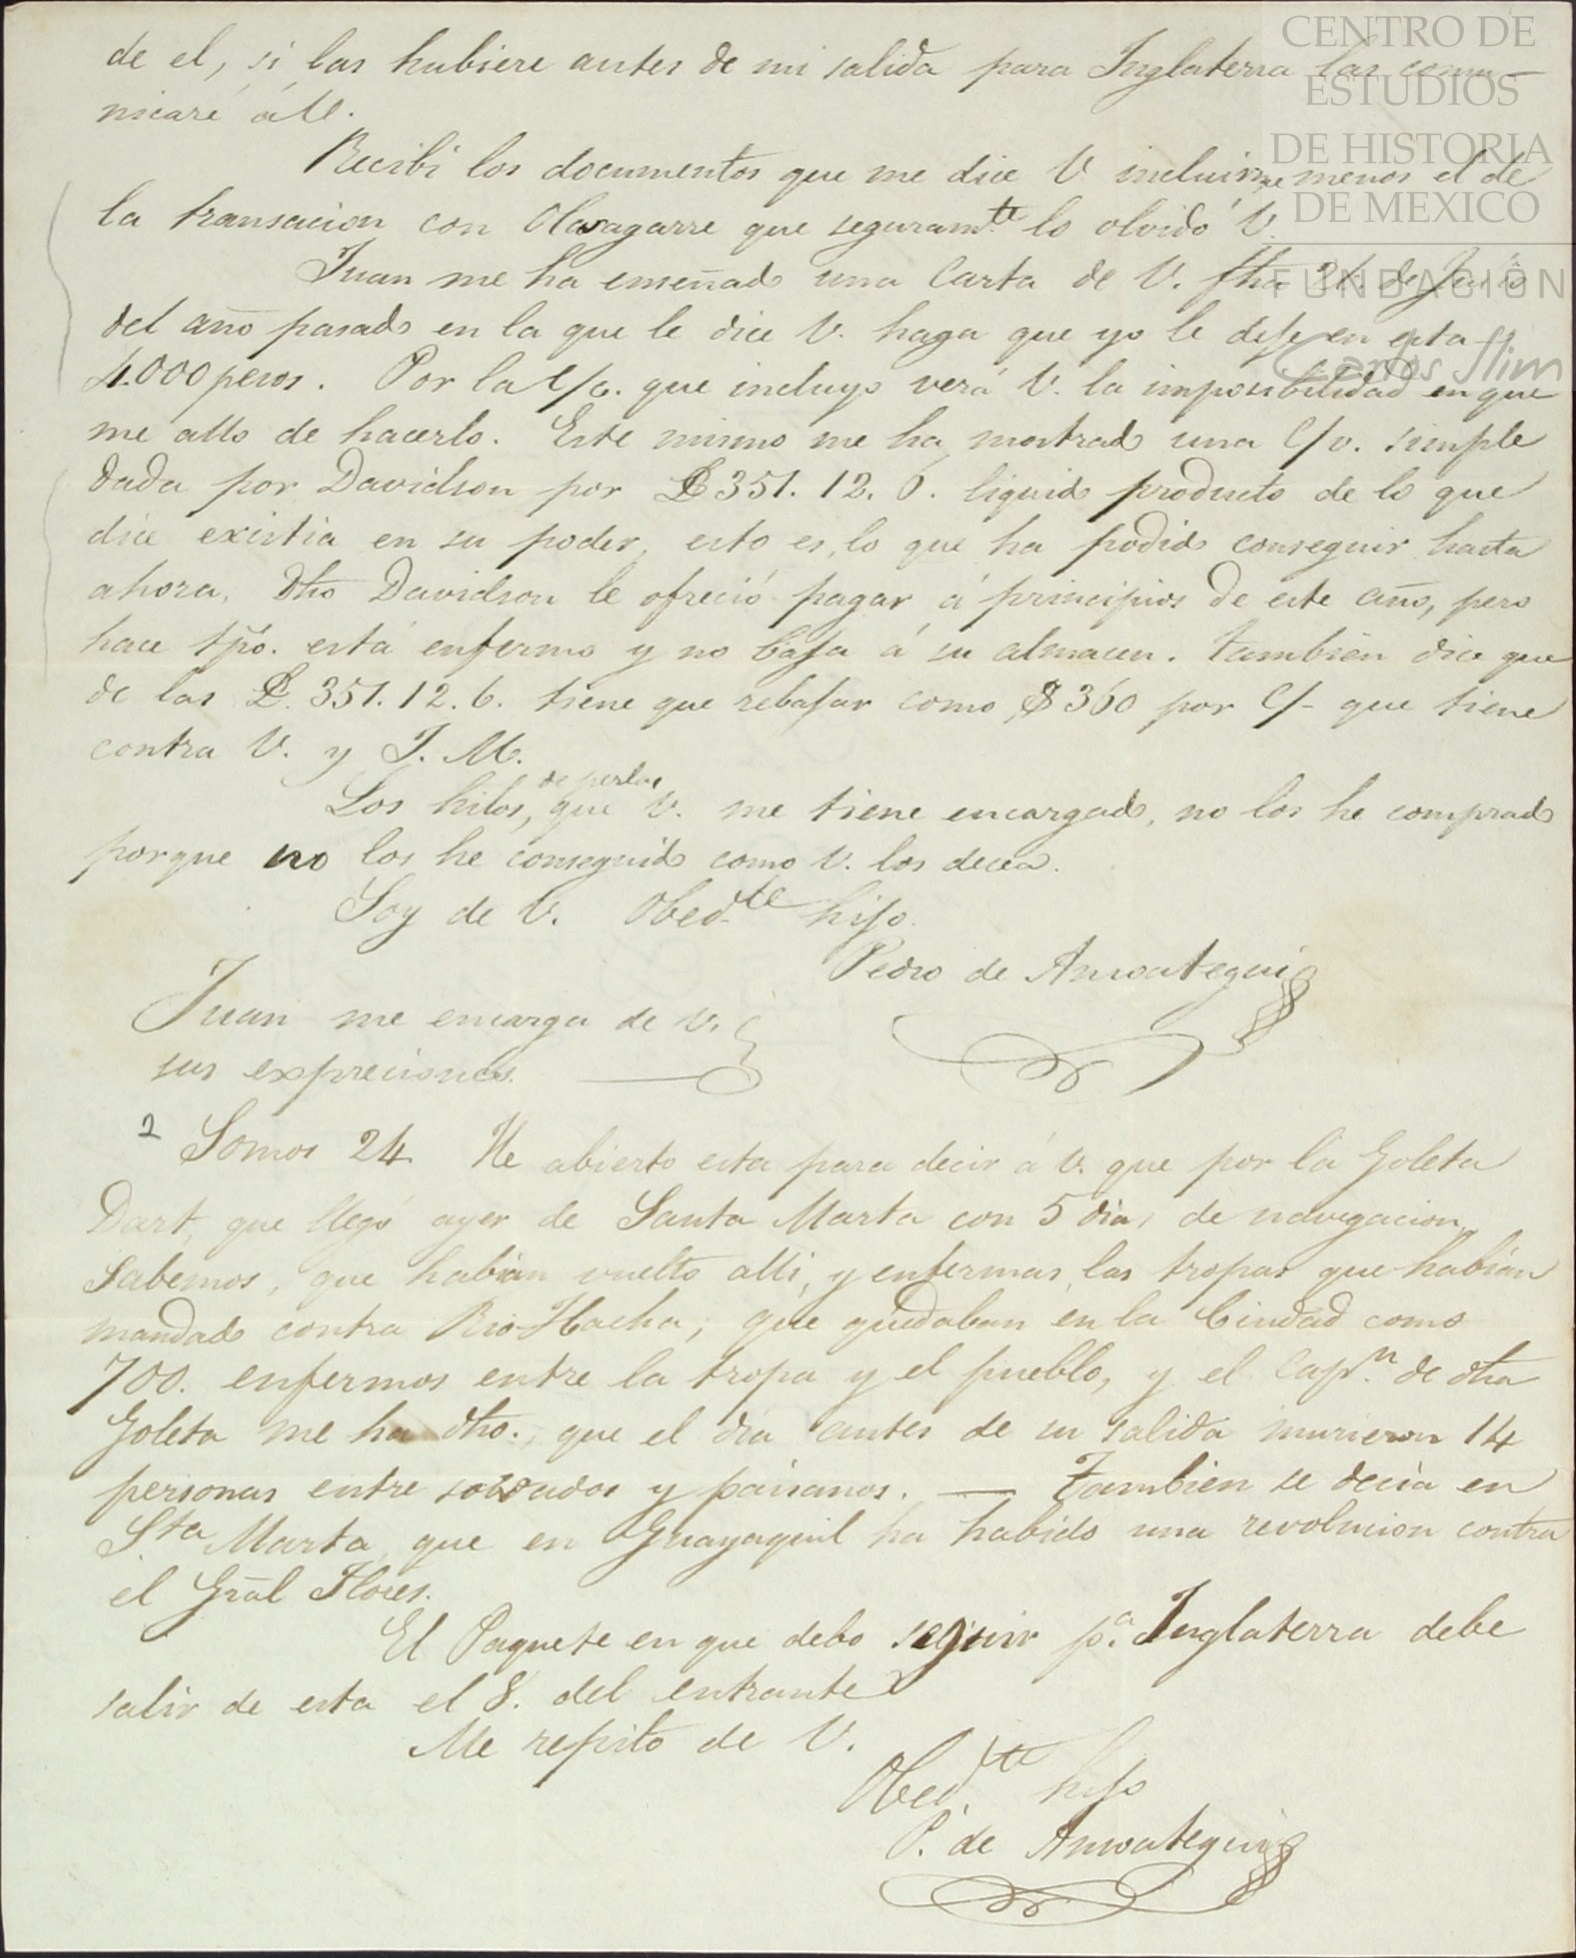 de el, si las hubiere antes de mi salida para Inglaterra las comu-
nicaré á V.
Recibí los documentos que me dice V. incluirme menos el de
la transacion con Olasagarre que seguram.te lo olvidó V.
Juan me ha enseñado una Carta de V. fha 21. de Julio
del año pasado en la que le dice V. haga que yo le deje en esta
4.000 pesos. Por la C/c. que incluyo verá V. la imposibilidad en que
me allo de hacerlo. Este mismo me ha mostrado una C/v. simple
dada por Davidson por £351. 12. 6. liquido producto de lo que
dice existia en su poder, esto es lo que ha podido conseguir hasta
ahora. Dho Davidson le ofreció pagar á principios de este año, pero
hace tpo. está enfermo y no baja á su almacen. tambien dice que
de las £. 351. 12. 6. tiene que rebajar como $360 por C/- que tiene
contra V. y J. M.
Los hilos, de perlas que V. me tiene encargado, no los he comprado
porque no los he conseguido como V. los decea.
Soy de V. Obed.te hijo.
Pedro de Ansoategui
Juan me encarga de V.
sus expreciones.
2 Somos 24. He abierto esta para decir á V. que por la Goleta
Dart, que llegó ayer de Santa Marta con 5 dias de navegacion,
sabemos, que habian vuelto alli, y enfermas las tropas que habian
mandado contra Rio-Hacha; que quedaban en la Ciudad como
700. enfermos entre la tropa y el pueblo, y el Cap.n de dha
Goleta me ha dho., que el dia antes de su salida murieron 14
personas entre soldados y paisanos. — Tambien se decia en
Sta Marta, que en Guayaquil ha habido una revolucion contra
el Gñal Flores.
El Paquete en que debo seguir p.a Inglaterra debe
salir de esta el 8. del entrante
Me repito de V.
Obed.te hijo
P. de Ansoategui
CENTRO DE
ESTUDIOS
DE HISTORIA
DE MEXICO
FUNDACIÓN
Carlos Slim